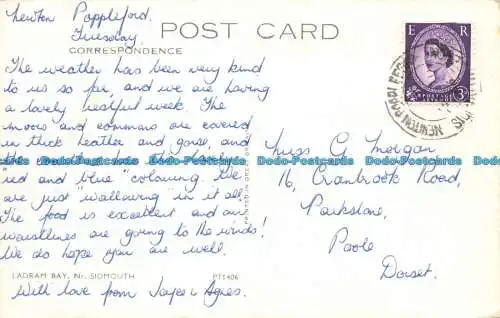 Newton Poppleford.
Tuesday.
POST CARD
CORRESPONDENCE
The weather has been very kind
to us so far, and we are having
a lovely restful week. The
moors and commons are covered
in thick heather and gorse, and
the
"red and blue" colouring. We
are just "wallowing" in it all.
The food is excellent and our
waistlines are going to the winds!
We do hope you are well.
LADRAM BAY, Nr. SIDMOUTH
PT5406
With love from Joyce & Agnes.
E R
POSTAGE
REVENUE
3D
NEWTON POPPLEFORD
Miss G Morgan,
16, Cranbrook Road,
Parkstone,
Poole
Dorset.
Dodo-Postcards Dodo-Postcards Dodo-Postcards Dodo-Postcards Dodo-Postcards